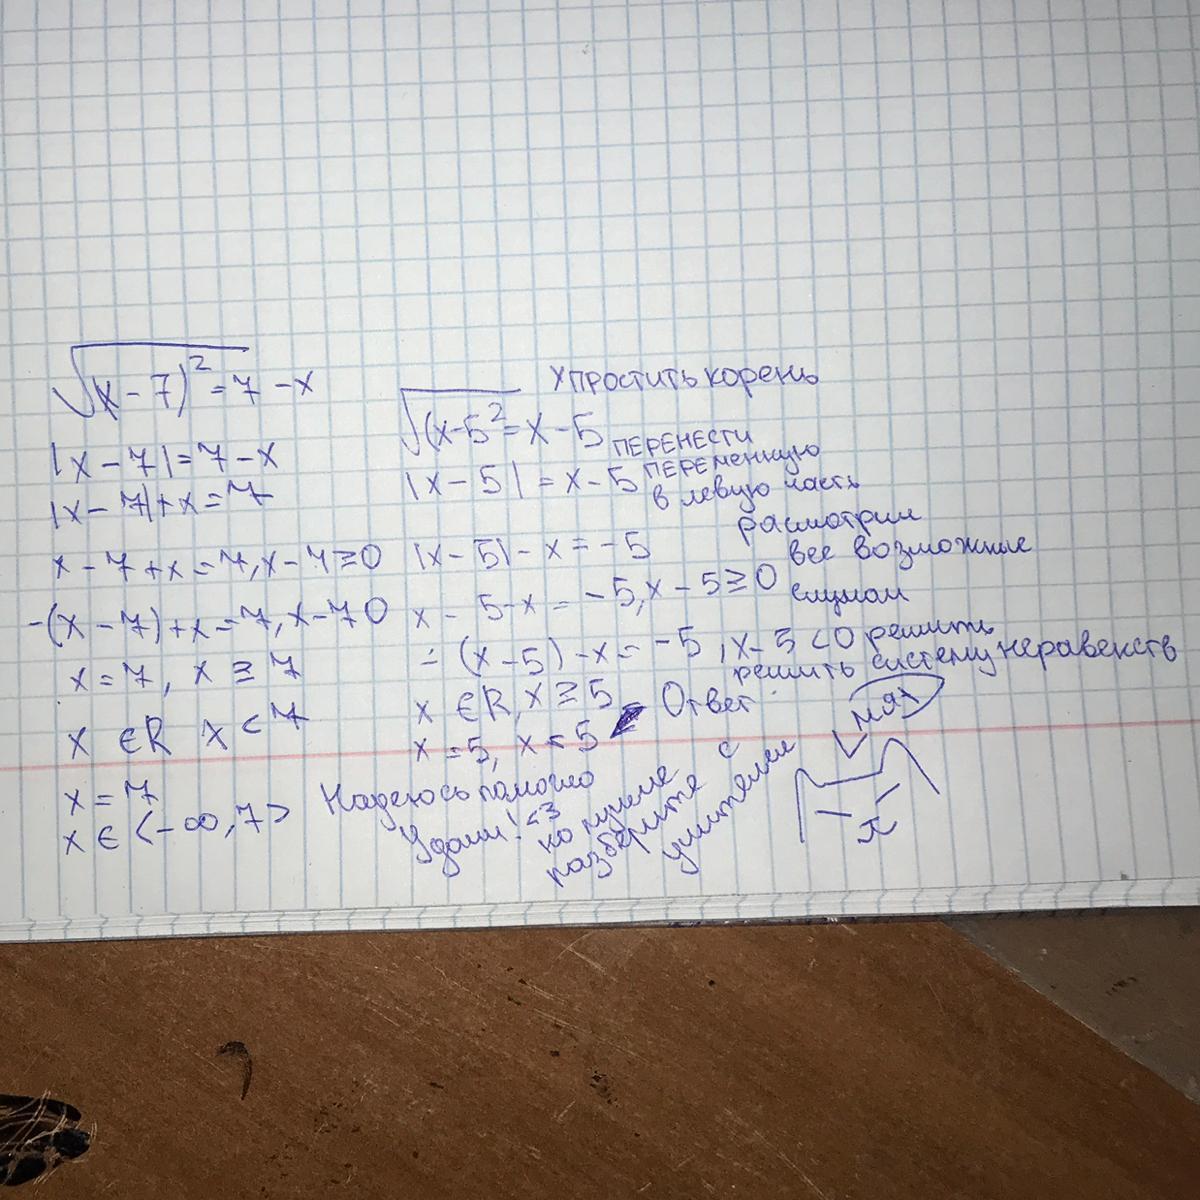 √(x-7)²=7-x
|x-7|=7-x
|x-7|+x=7
x-7+x=7, x-7≥0
-(x-7)+x=7, x-70
x=7, x≥7
x∈R x<7
x=7
x∈<-∞,7>
Упростить корень
√(x-5²=x-5
ПЕРЕНЕСТИ
|x-5|=x-5 ПЕРЕменную
в левую часть
расмотрим
|x-5|-x=-5 все возможные
x-5-x=-5, x-5≥0 случаи
-(x-5)-x=-5, x-5<0 решить
решить систему неравенств
x∈R, x≥5 Ответ
x=5, x<5
Надеюсь помогло
Удачи! <3
но лучше
разберите с
учителем
мях